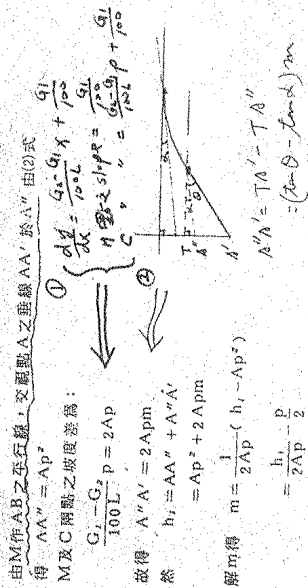 由M作AB之平行線，交視點A之垂線AA'於A"由(2)式
得 AA" = Ap²
M及C兩點之坡度差為：
(G₁-G₂)/(100L) p = 2Ap
故得 A"A' = 2Apm
然 h₁ = AA" + A"A'
= Ap² + 2Apm
解m得 m = 1/(2Ap) (h₁ - Ap²)
= h₁/(2Ap) - p/2
① dy/dx = (G₂-G₁)/(100L) x + G₁/100
M點之slope = G₁/100
C " " " = (G₂-G₁)/(100L) p + G₁/100
②
T
A"
A'
θ
A"A' = TA' - TA"
= (tanθ - tanα) m